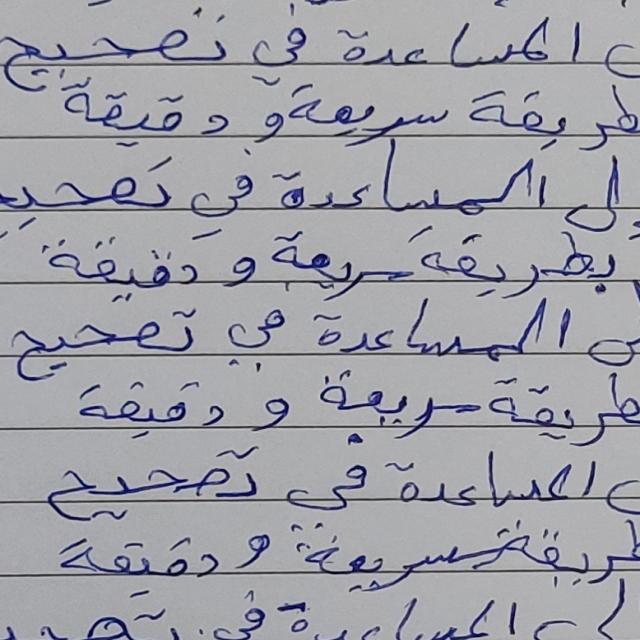 المساعدة في تصحيح
طريقة سريعة و دقيقة
ال المساعدة في تصحيح
بطريقة سريعة و دقيقة
المساعدة في تصحيح
طريقة سريعة و دقيقة
المساعدة في تصحيح
طريقة سريعة و دقيقة
المساعدة في